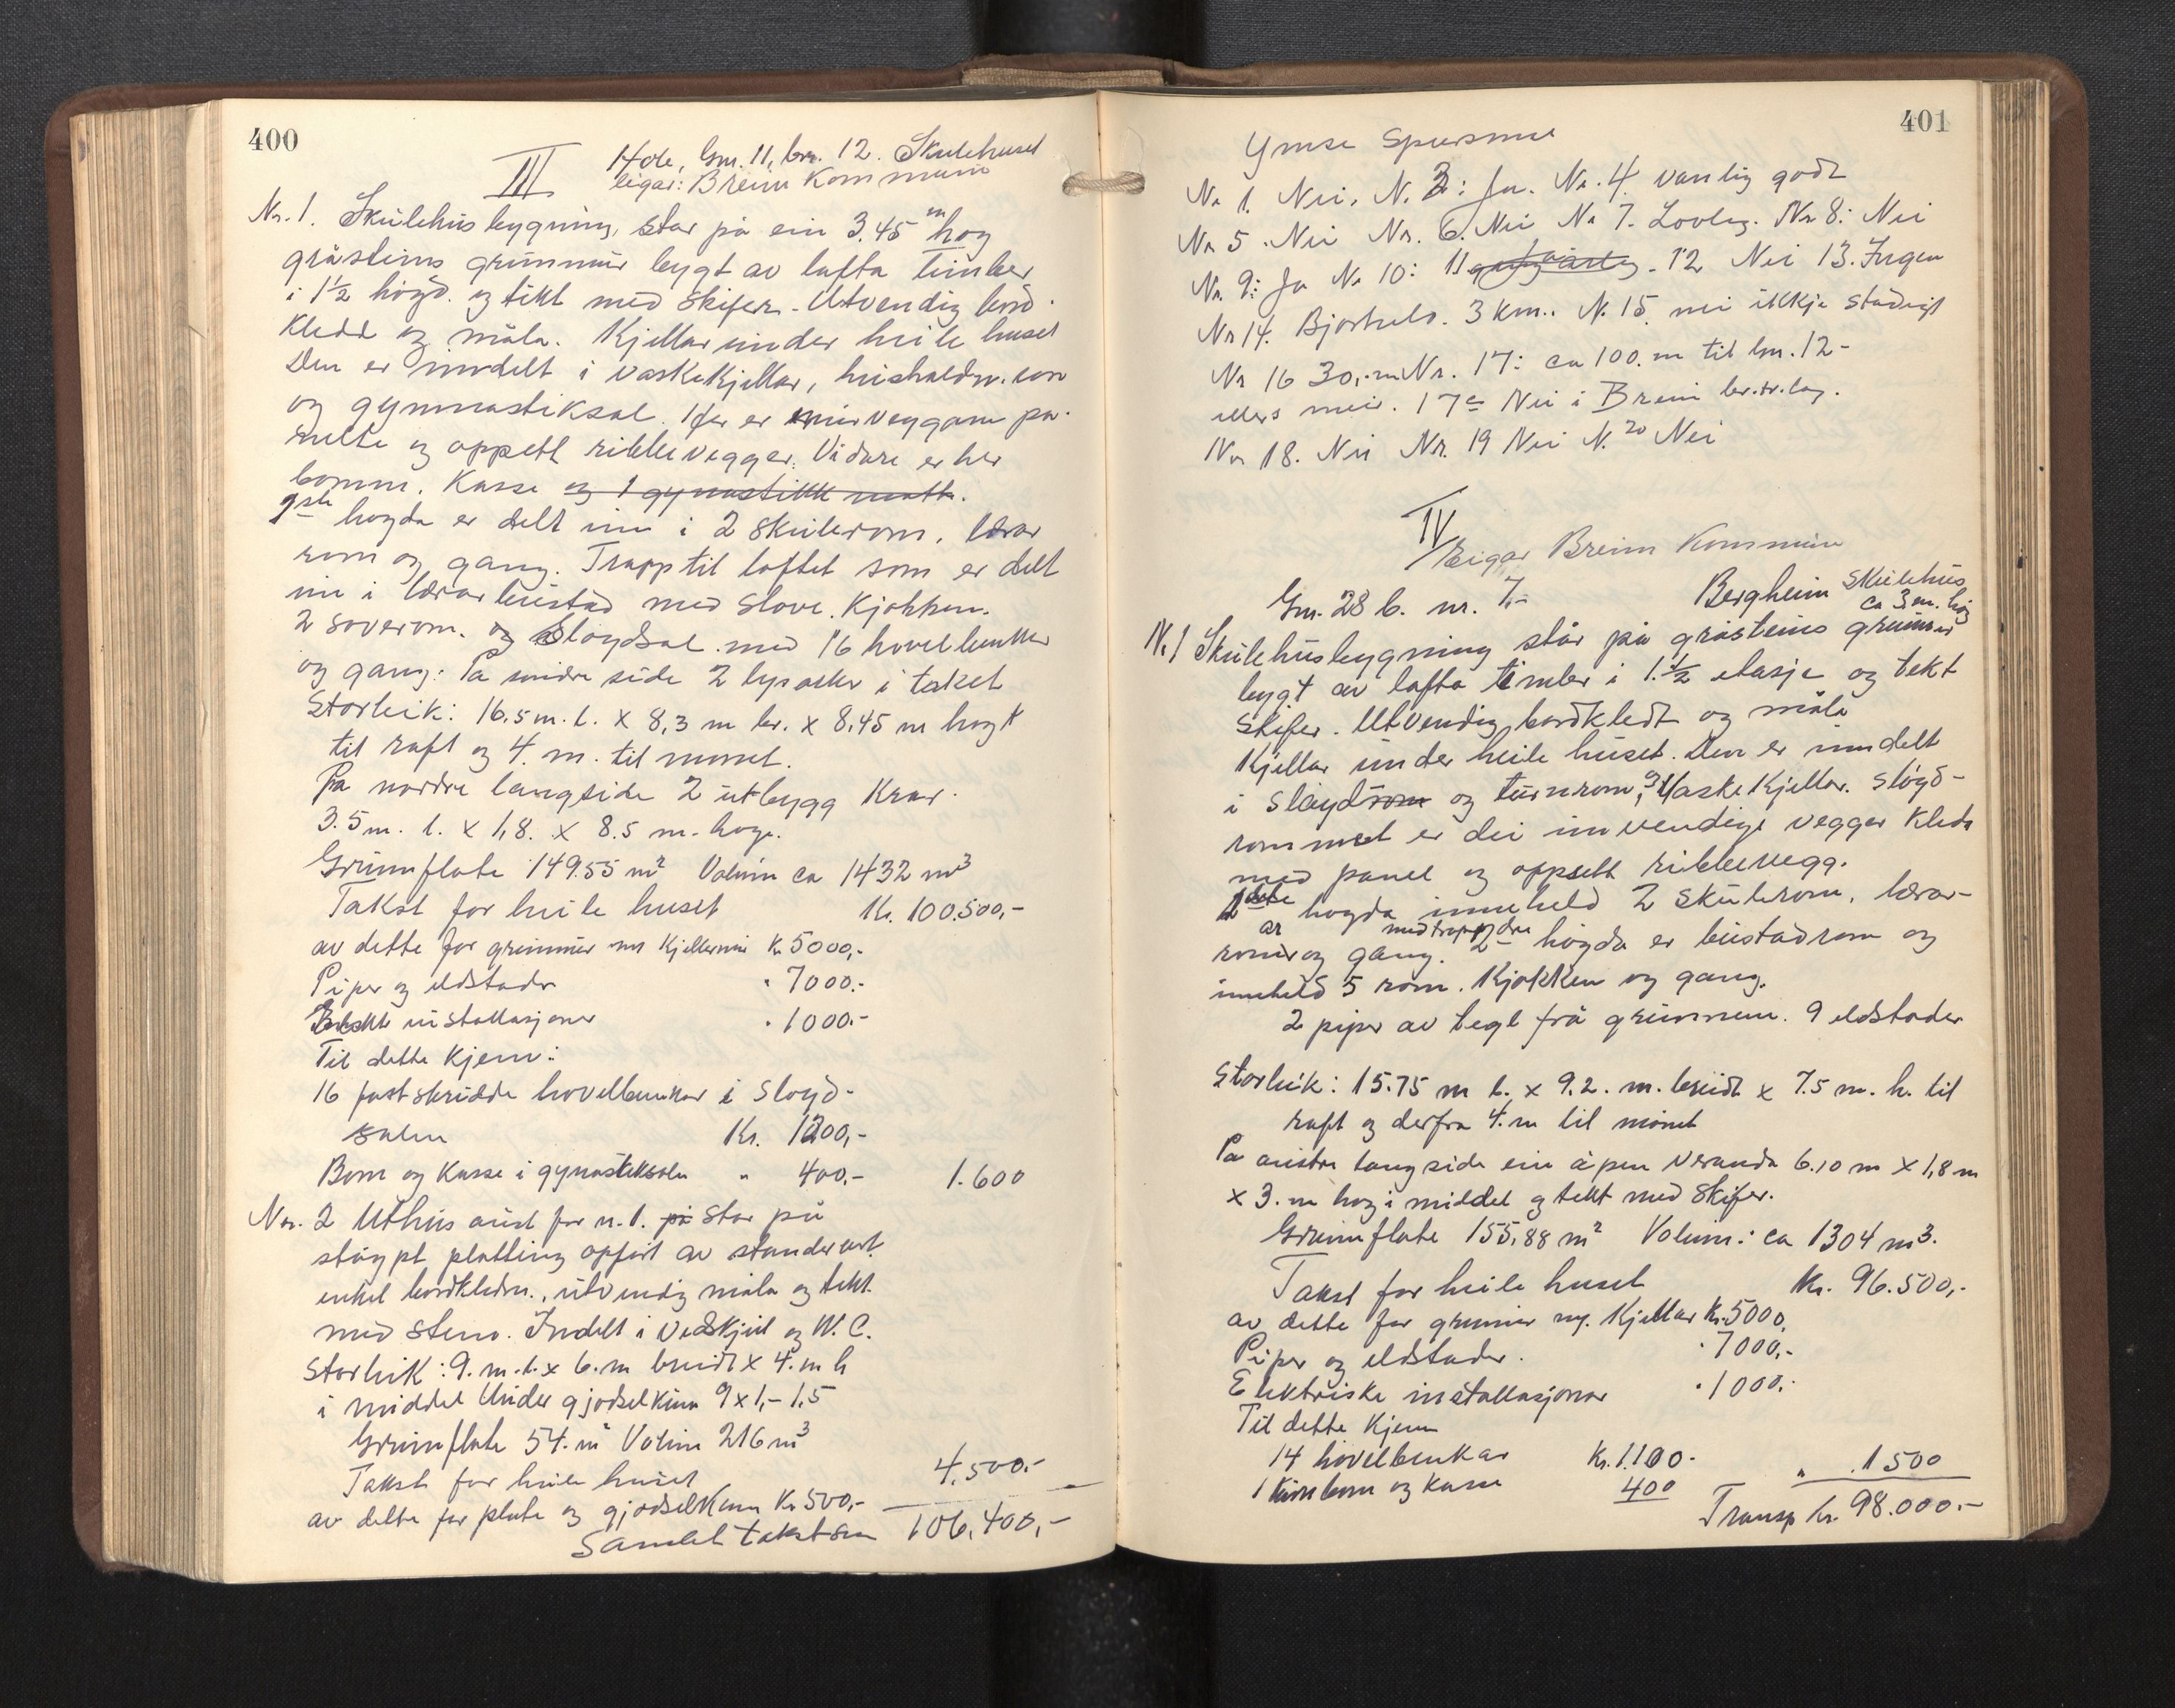 400
III
Hole, Gnr. 11, bnr. 12. Skulehuset
eigar: Breim Kommune
Nr. 1. Skulehusbygning, star på ein 3.45 m hog
gråsteins grunnmur bygt av lafta timber
i 1½ högd. og tekt med skifer. Utvendig bord-
kledd og måla. Kjellar under heile huset
Den er inndelt i vaskekjellar, hushaldn. rom
og gymnastiksal. Her er innveggane pa-
nelte og oppsett ribbevegger. Vidare er her
bomm. Kasse og 1 gynastikk matte.
1ste hogda er delt inn i 2 skulerom, lærar
rom og gang. Trapp til loftet som er delt
inn i lærarbustad med stove. Kjøkken.
2 soverom. og Sloydsal med 16 hovelbenker
og gang: På søndre side 2 lysarker i taket
Storleik: 16,5 m. l. x 8,3 m br. x 8,45 m hogt
til raft og 4. m. til mønet.
På nordre langside 2 utbygg Kvar.
3.5 m. l. x 1,8. x 8.5 m. høge.
Grunnflate 149.55 m² Volum ca 1432 m³
Takst for heile huset Kr. 100.500,-
av dette for grunnmur m/ Kjellerinnr. Kr 5000,-
Piper og eldstader " 7000.-
Elektr. installasjoner " 1000.-
Til dette kjem:
16 fastskrudde hovelbenkar i Sloyd-
salen Kr. 1200,-
Bom og Kasse i gynastiksalen " 400,- 1.600
Nr. 2 Uthus aust for nr. 1. på Star på
støypt platting opført av standerverk.
enkel bordkledn., utvendig måla og tekt.
med stein. Indelt i vedskjul og W.C.
Storleik: 9. m. l. x 6. m breidt x 4. m h
i middel Under gjødselkum 9 x 1,- 1,5
Grunnflate 54. m² Volum 216 m³
Takst for heile huset 4.500.-
av dette for plate og gjødselkum Kr 500,-
Samlet takstsum 106.400,-
401
Ymse Spursmål
Nr 1. Nei. Nr. 3: Ja. Nr. 4 vanlig godt
Nr 5. Nei Nr. 6. Nei Nr 7. Lovleg. Nr 8: Nei
Nr. 9: Ja Nr 10: 11 12 Nei 13. Ingen
Nr 14. Bjørkelo. 3 km. Nr. 15. nei ikkje stadigt
Nr 16 30,- m Nr. 17: ca 100. m til bnr. 12-
ellers meir. 17a Nei i Breim br.tr.lag.
Nr 18. Nei Nr. 19 Nei Nr. 20 Nei
IV
Eigar Breim Kommune
Gnr. 28 b. nr. 7,- Bergheim Skulehus
ca 3 m. høg
Nr. 1 Skulehusbygning står på gråsteins grunnmur
bygt av lafta timber i 1.½ etasje og tekt
skifer. Utvendig bordkledt og måla
Kjellar under heile huset. Den er inndelt
i Sløydrom og turnrom, og Vaskekjellar. Sløyd-
rommet er dei innvendige vegger kledt
med panel og oppsett ribbevegg.
1ste høgda inneheld 2 skulerom, lærar-
romar og gang. med trapp 2dre høgda er bustadrom og
inneheld 5 rom. Kjøkken og gang.
2 piper av tegl frå grunnen. 9 eldstader
Storleik: 15.75 m l. x 9.2. m. breidt x 7.5 m. h. til
raft og derfra 4. m til mønet
På austre langside ein åpen veranda 6.10 m x 1,8 m
x 3. m høg i middel og tekt med Skifer.
Grunnflate 155,88 m² Volum: ca 1304 m³.
Takst for heile huset Kr. 96.500,-
av dette for grunnmur og Kjellar Kr. 5000,
Piper og eldstader. " 7000,-
Elektriske installasjonar " 1000.-
Til dette Kjem
14 hovelbenkar Kr. 1.100-
1 turnbom og Kasse 400 " 1500
Transp kr. 98.000.-